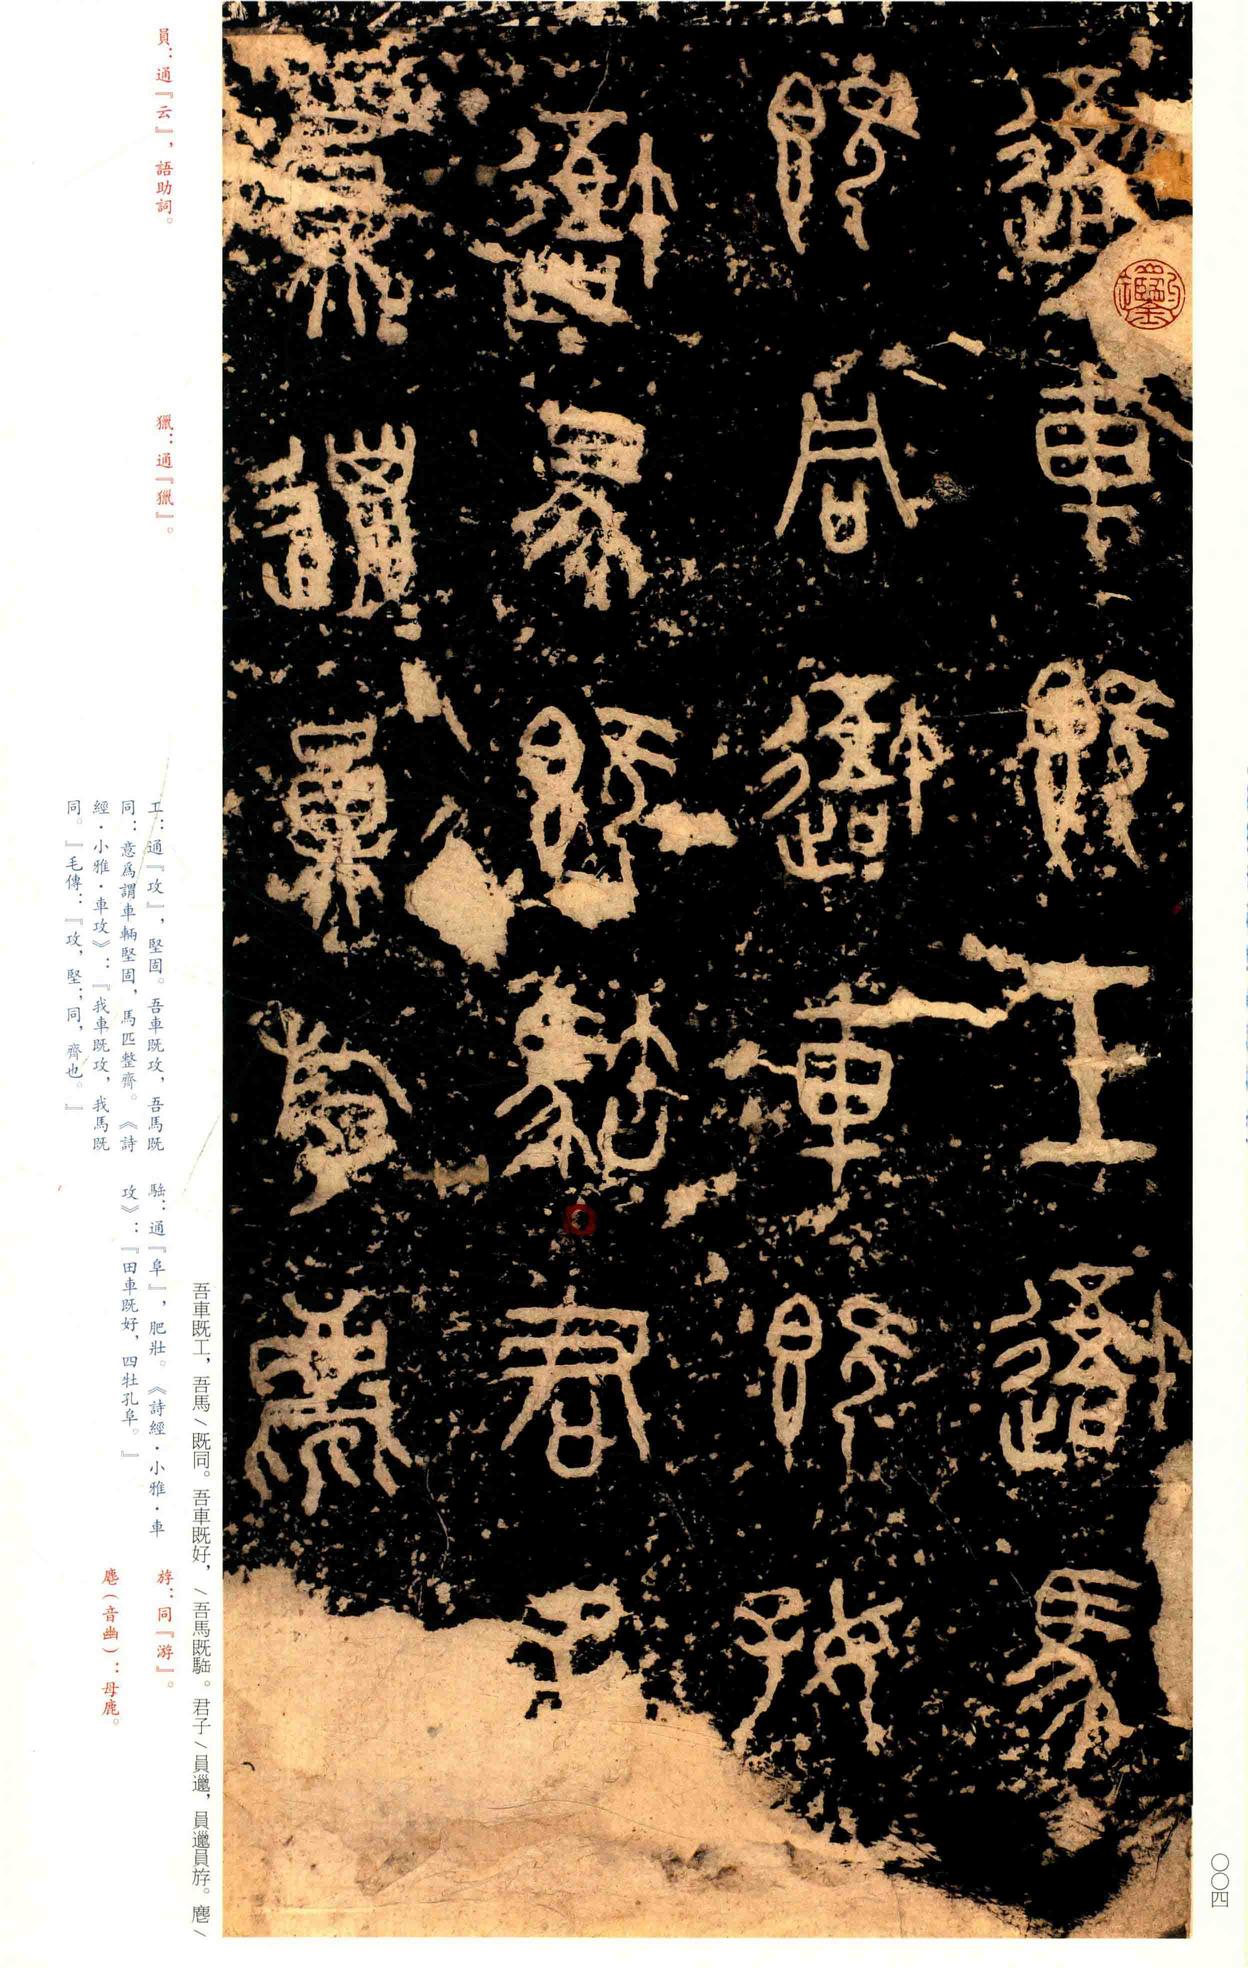 吾車既工吾馬
既同吾車既好
吾馬既君子
員邋員斿麀
吾車既工，吾馬／既同。吾車既好，／吾馬既。君子／員邋，員邋員斿。麀／
員：通『云』，語助詞。
獵：通『獵』。
工：通『攻』，堅固。吾車既攻，吾馬既
同：意爲謂車輛堅固，馬匹整齊。《詩
經·小雅·車攻》：『我車既攻，我馬既
同。』毛傳：『攻，堅；同，齊也。』
：通『阜』，肥壯。《詩經·小雅·車
攻》：『田車既好，四牡孔阜。』
斿：同『游』。
麀（音幽）：母鹿。
〇〇四